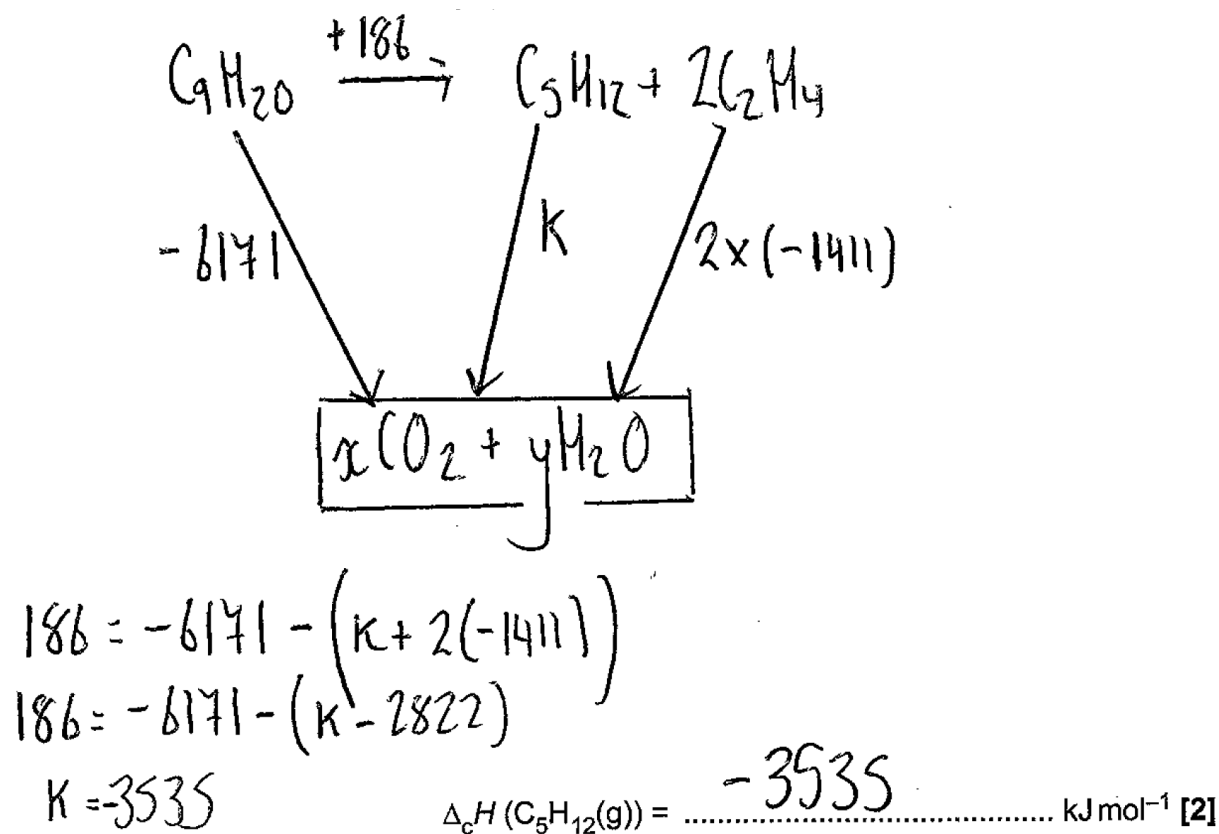 C9H20 +186→ C5H12 + 2C2H4
-6171 K 2×(-1411)
xCO2 + yH2O
186 = -6171 - (K + 2(-1411))
186 = -6171 - (K - 2822)
K = -3535
ΔcH (C5H12(g)) = -3535 kJ mol–1 [2]